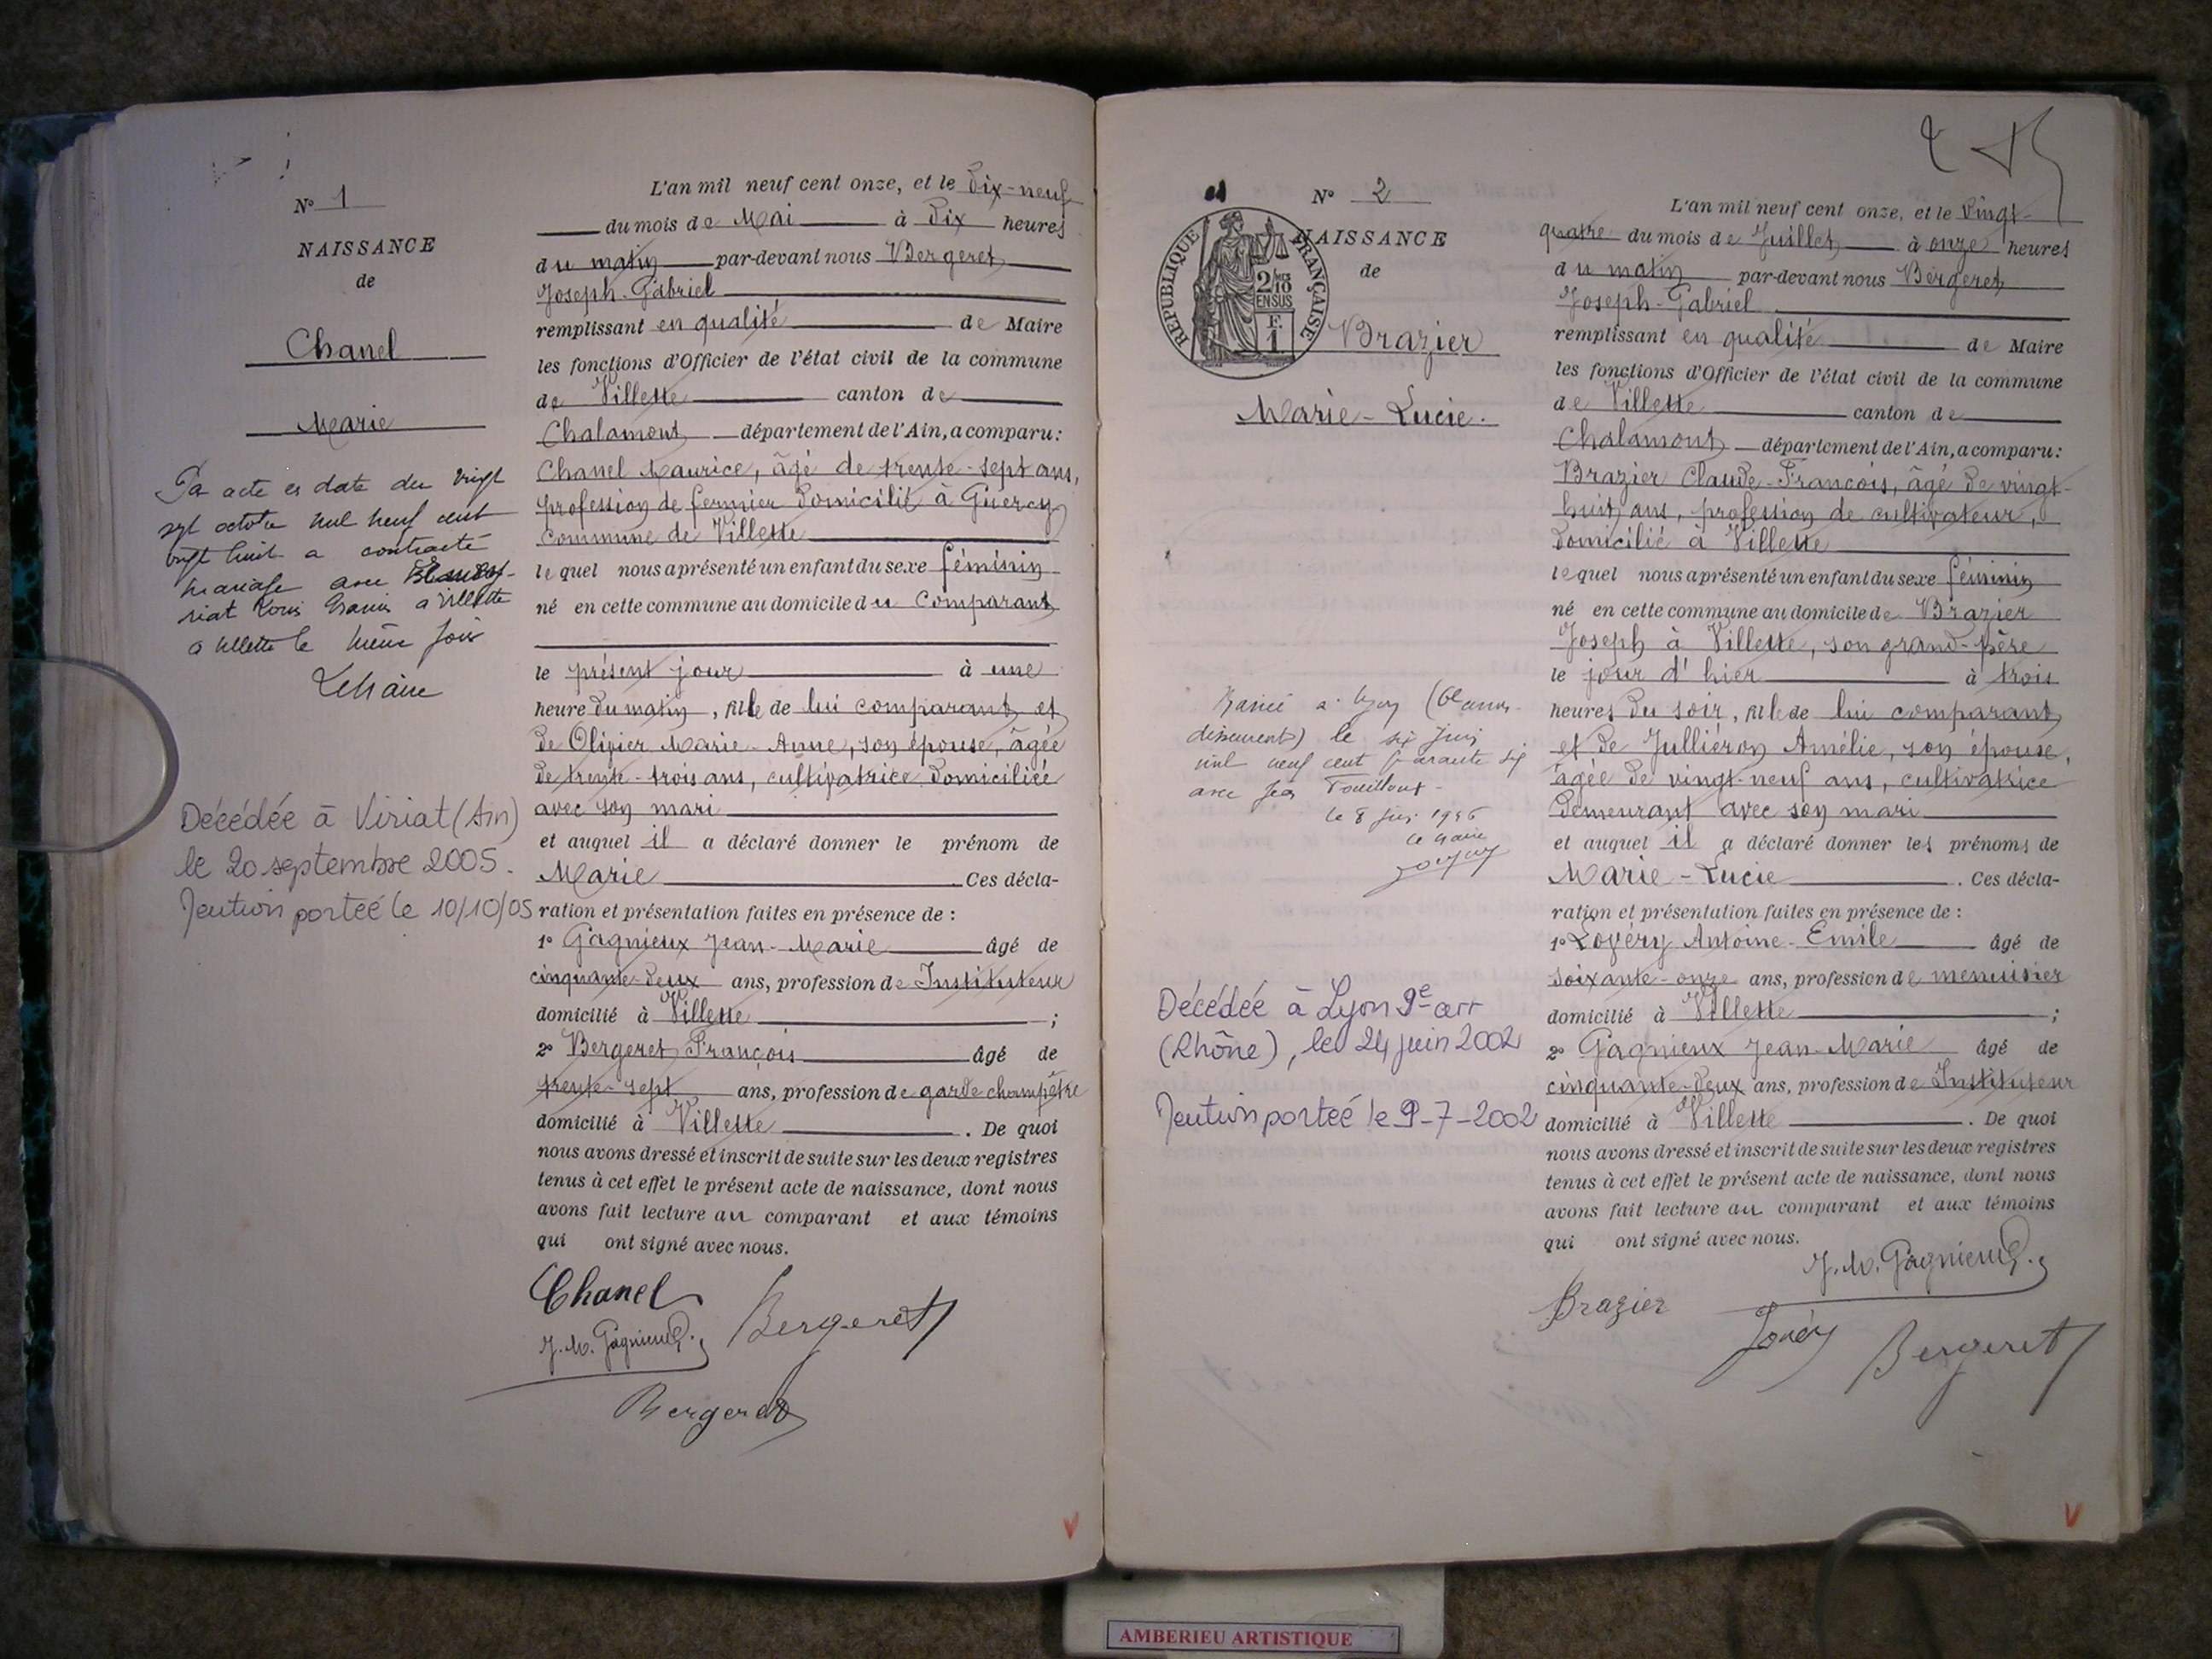 N° 1
NAISSANCE
de
Chanel
Marie
Par acte en date du vingt
sept octobre mil neuf cent
vingt huit a contracté
mariage avec
riat Louis à Villette
à Villette le même jour
Le Maire
Décédée à Viriat (Ain)
le 20 septembre 2005.
Mention portée le 10/10/05
L'an mil neuf cent onze, et le Dix-neuf
du mois de Mai à Dix heures
du matin par-devant nous Bergeret
Joseph-Gabriel
remplissant en qualité de Maire
les fonctions d'Officier de l'état civil de la commune
de Villette canton de
Chalamont département de l'Ain, a comparu :
Chanel Maurice, âgé de trente-sept ans,
profession de fermier Domicilié à Guercy
commune de Villette
lequel nous a présenté un enfant du sexe féminin
né en cette commune au domicile du comparant
le présent jour à une
heure du matin, fille de lui comparant et
de Olivier Marie-Anne, son épouse, âgée
de trente-trois ans, cultivatrice domiciliée
avec son mari
et auquel il a déclaré donner le prénom de
Marie . Ces décla-
ration et présentation faites en présence de :
1° Gagnieux Jean-Marie âgé de
cinquante-deux ans, profession de Instituteur
domicilié à Villette ;
2° Bergeret François âgé de
trente-sept ans, profession de garde champêtre
domicilié à Villette . De quoi
nous avons dressé et inscrit de suite sur les deux registres
tenus à cet effet le présent acte de naissance, dont nous
avons fait lecture au comparant et aux témoins
qui ont signé avec nous.
Chanel
J. M. Gagnieux Bergeret
Bergeret
N° 2
NAISSANCE
de
RÉPUBLIQUE FRANÇAISE
2/10
EN SUS
F.
1
Brazier
Marie-Lucie.
Mariée à Lyon (6e arron-
dissement) le six juin
mil neuf cent quarante six
avec Jean Fouilloux
le 8 juin 1946
Le Maire
Décédée à Lyon 9e arr
(Rhône), le 24 juin 2002
Mention portée le 9-7-2002
L'an mil neuf cent onze, et le Vingt-
quatre du mois de Juillet à onze heures
du matin par-devant nous Bergeret
Joseph-Gabriel
remplissant en qualité de Maire
les fonctions d'Officier de l'état civil de la commune
de Villette canton de
Chalamont département de l'Ain, a comparu :
Brazier Claude-François, âgé de vingt-
huit ans, profession de cultivateur,
Domicilié à Villette
lequel nous a présenté un enfant du sexe féminin
né en cette commune au domicile de Brazier
Joseph à Villette, son grand-père
le jour d'hier à trois
heures du soir, fille de lui comparant
et de Julliéron Amélie, son épouse,
âgée de vingt-neuf ans, cultivatrice
demeurant avec son mari
et auquel il a déclaré donner les prénoms de
Marie-Lucie . Ces décla-
ration et présentation faites en présence de :
1° Antoine-Emile âgé de
soixante-onze ans, profession de menuisier
domicilié à Villette ;
2° Gagnieux Jean-Marie âgé de
cinquante-deux ans, profession de Instituteur
domicilié à Villette . De quoi
nous avons dressé et inscrit de suite sur les deux registres
tenus à cet effet le présent acte de naissance, dont nous
avons fait lecture au comparant et aux témoins
qui ont signé avec nous.
J. M. Gagnieux
Brazier
Bergeret
AMBERIEU ARTISTIQUE